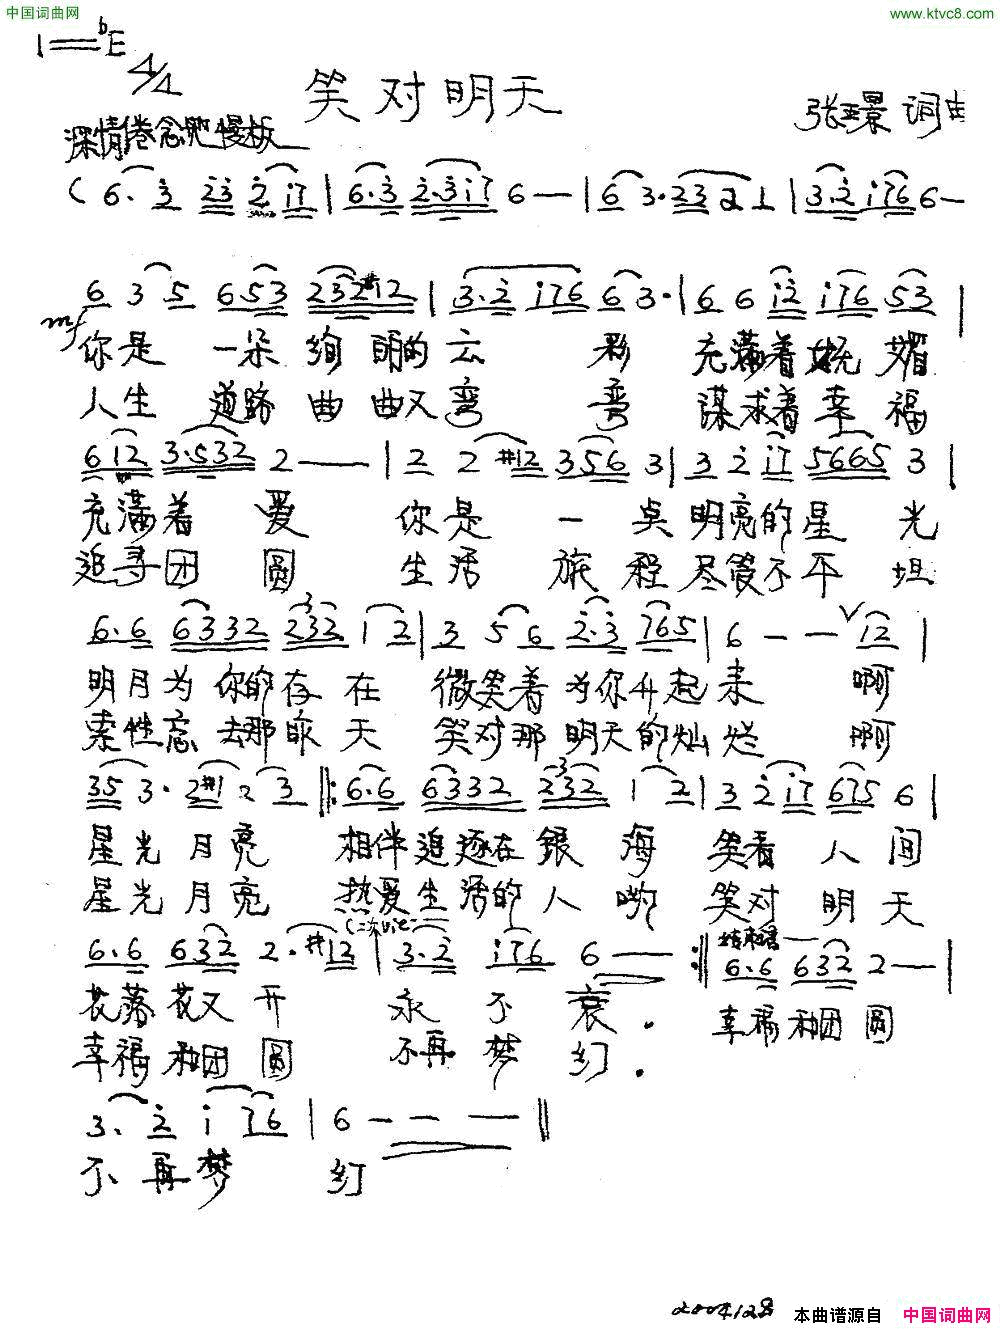 中国词曲网
www.ktvc8.com
1=bE
4/4
笑对明天
张玉景 词曲
深情倦念地 慢板
(6. 3 23 2 i7 | 6.3 2.3i7 6 — — | 6 3.23 2 1 | 3.2 i76 6 —
6 3 5 653 232#12 | 3.2 i76 6 3. | 6 6 i2 i76 53 |
mf
你是 一朵 绚丽的云 彩 充满着妩媚
人生 道路 曲曲又弯 弯 谋求着幸福
6 i2 3.532 2 — — | 2 2 #12 356 3 | 3 2 i7 5665 3 |
充满着 爱 你是 一 点 明亮的星 光
追寻团 圆 生活 旅 程 尽管不平 坦
6.6 6332 232 1 2 | 3 5 6 2.3 765 | 6 — — V i2 |
明月为 你的存 在 微笑着 为你升起 来 啊
索性忘 去那昨 天 笑对那 明天的灿 烂 啊
35 3. 2#1. 2 3 ‖: 6.6 6332 232 1 2 | 3 2 i7 675 6 |
星光 月亮 相伴追逐在 银 海 笑看 人 间
星光 月亮 热爱生活的 人 哟 笑对 明 天
6.6 632 2. #12 | 3.2 i76 6 — — :‖ 结束句 6.6 632 2 — — |
花落 花又 开 永 不 衰. 幸福 和团 圆
幸福 和团 圆 不再 梦 幻.
3. 2 i 76 | 6 — — — ‖
不 再 梦 幻
本曲谱源自 中国词曲网